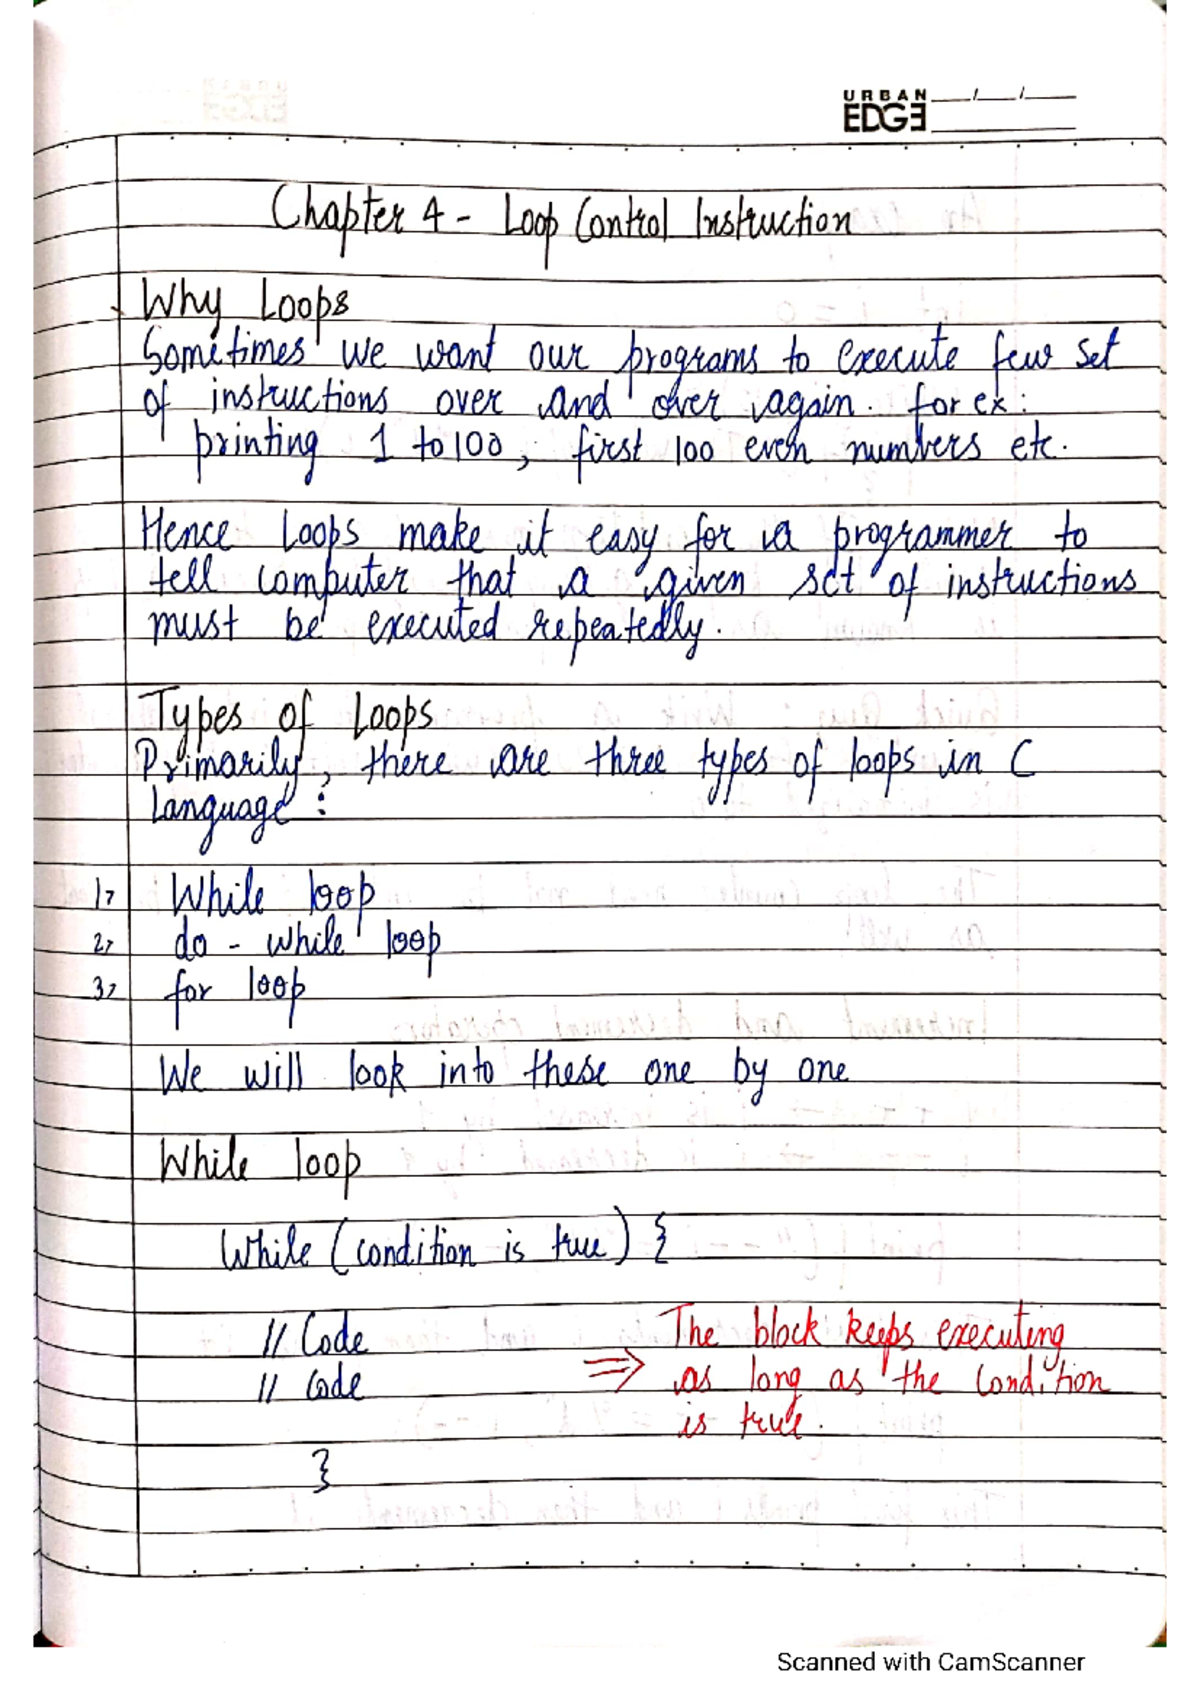 URBAN
EDGE
Chapter 4 - Loop Control Instruction
Why Loops
Sometimes we want our programs to execute few set
of instructions over and over again. for ex:
printing 1 to 100, first 100 even numbers etc.
Hence Loops make it easy for a programmer to
tell computer that a given set of instructions
must be executed repeatedly.
Types of Loops
Primarily, there are three types of loops in C
language :
1> While loop
2> do - while loop
3> for loop
We will look into these one by one
While loop
While (condition is true) {
// Code
// Code
⇒ The block keeps executing
as long as the condition
is true.
}
Scanned with CamScanner